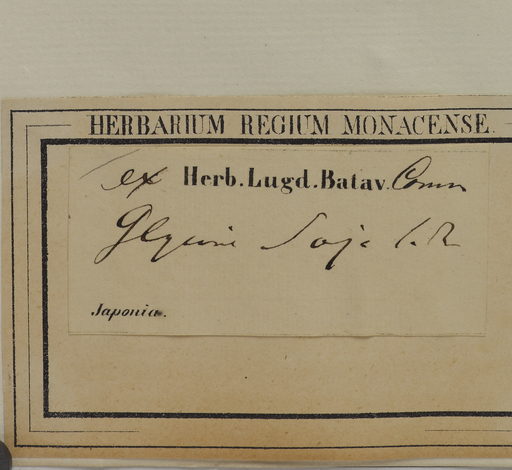 HERBARIUM REGIUM MONACENSE.
ex Herb. Lugd. Batav. Comm
Glycine Soja
Japonia.